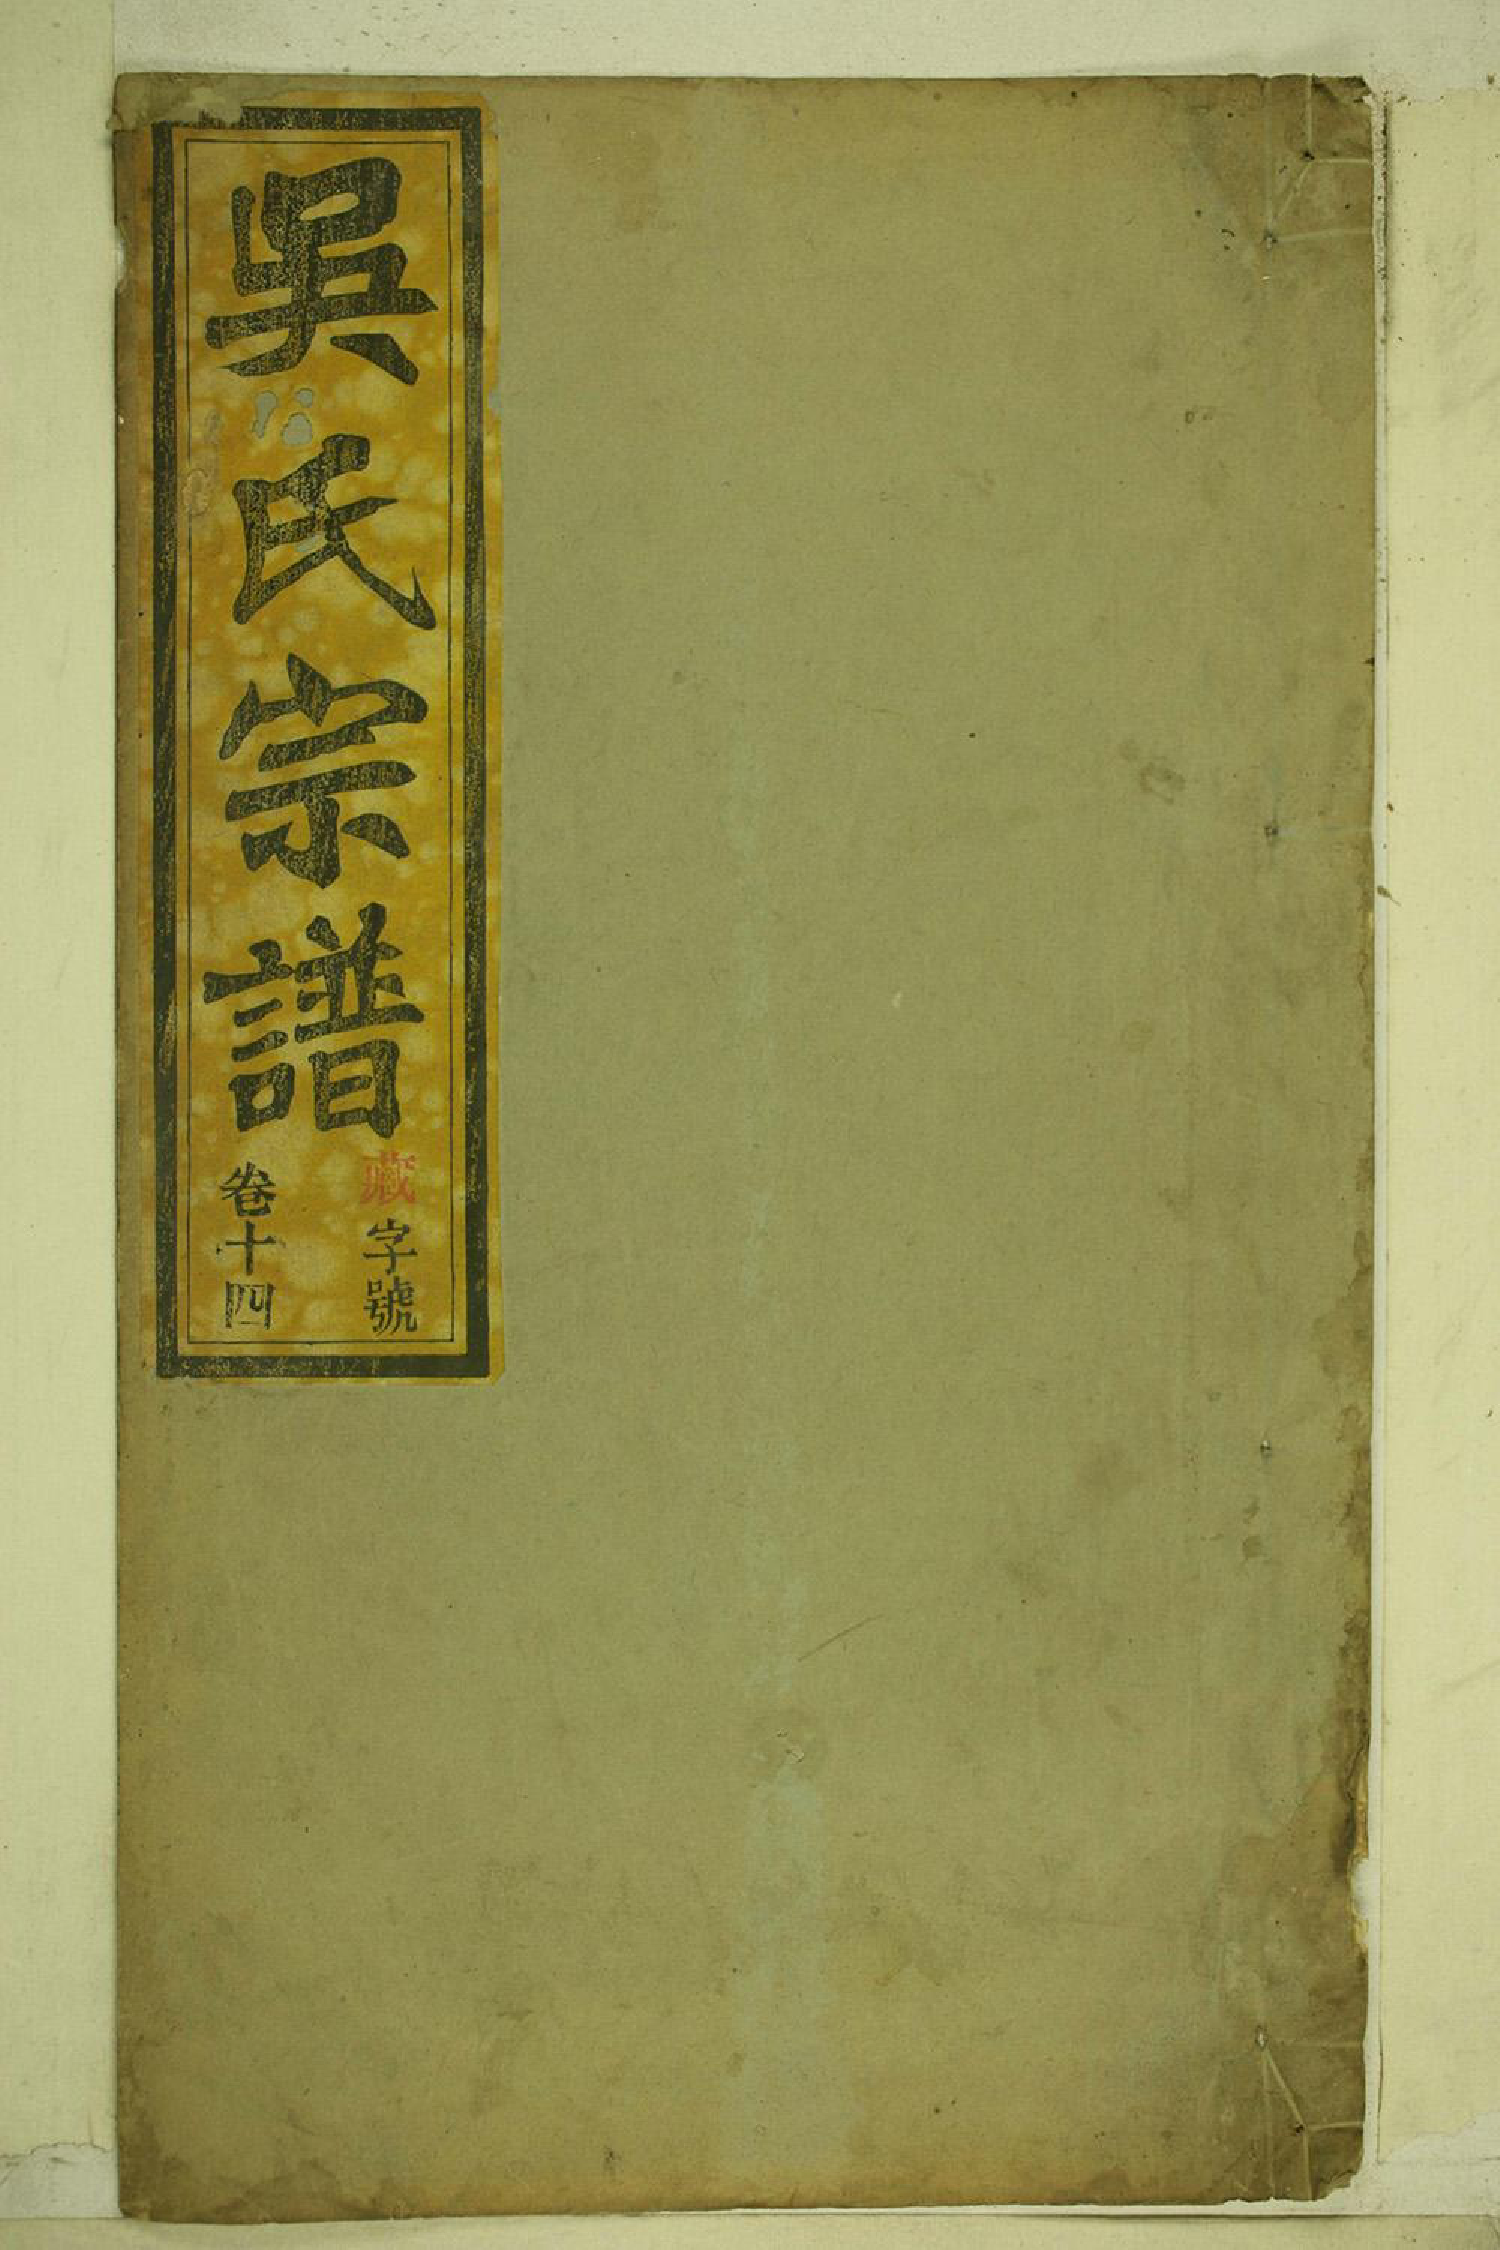 吳氏宗譜
藏字號
卷十四